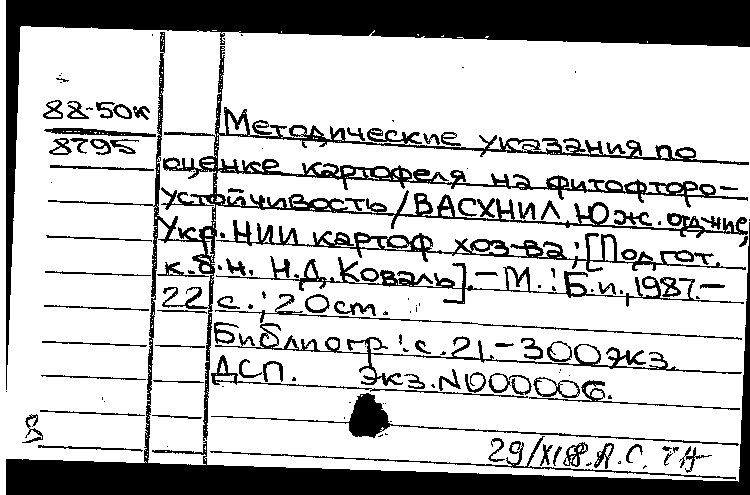 88-50к
8795
Методические указания по
оценке картофеля на фитофторо-
устойчивость/ВАСХНИЛ, Юж. отд-ние,
Укр. НИИ картоф. хоз-ва; [Подгот.
к.б.н. Н.Д. Коваль]. - М.: Б.и., 1987. -
22 с.; 20 см.
Библиогр.: с. 21. - 300 экз.
ДСП. Экз. N000006.
8
29/XI 88. Л.С.